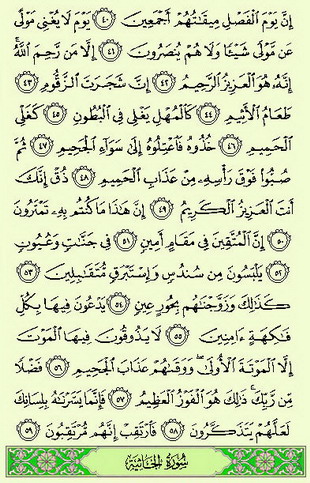 إِنَّ يَوْمَ ٱلْفَصْلِ مِيقَـٰتُهُمْ أَجْمَعِينَ ٤٠ يَوْمَ لَا يُغْنِى مَوْلًى
عَن مَّوْلًى شَيْـًٔا وَلَا هُمْ يُنصَرُونَ ٤١ إِلَّا مَن رَّحِمَ ٱللَّهُ ۚ
إِنَّهُۥ هُوَ ٱلْعَزِيزُ ٱلرَّحِيمُ ٤٢ إِنَّ شَجَرَتَ ٱلزَّقُّومِ ٤٣
طَعَامُ ٱلْأَثِيمِ ٤٤ كَٱلْمُهْلِ يَغْلِى فِى ٱلْبُطُونِ ٤٥ كَغَلْىِ
ٱلْحَمِيمِ ٤٦ خُذُوهُ فَٱعْتِلُوهُ إِلَىٰ سَوَآءِ ٱلْجَحِيمِ ٤٧ ثُمَّ
صُبُّوا۟ فَوْقَ رَأْسِهِۦ مِنْ عَذَابِ ٱلْحَمِيمِ ٤٨ ذُقْ إِنَّكَ
أَنتَ ٱلْعَزِيزُ ٱلْكَرِيمُ ٤٩ إِنَّ هَـٰذَا مَا كُنتُم بِهِۦ تَمْتَرُونَ
٥٠ إِنَّ ٱلْمُتَّقِينَ فِى مَقَامٍ أَمِينٍ ٥١ فِى جَنَّـٰتٍ وَعُيُونٍ
٥٢ يَلْبَسُونَ مِن سُندُسٍ وَإِسْتَبْرَقٍ مُّتَقَـٰبِلِينَ ٥٣
كَذَٰلِكَ وَزَوَّجْنَـٰهُم بِحُورٍ عِينٍ ٥٤ يَدْعُونَ فِيهَا بِكُلِّ
فَـٰكِهَةٍ ءَامِنِينَ ٥٥ لَا يَذُوقُونَ فِيهَا ٱلْمَوْتَ
إِلَّا ٱلْمَوْتَةَ ٱلْأُولَىٰ ۖ وَوَقَىٰهُمْ عَذَابَ ٱلْجَحِيمِ ٥٦ فَضْلًا
مِّن رَّبِّكَ ۚ ذَٰلِكَ هُوَ ٱلْفَوْزُ ٱلْعَظِيمُ ٥٧ فَإِنَّمَا يَسَّرْنَـٰهُ بِلِسَانِكَ
لَعَلَّهُمْ يَتَذَكَّرُونَ ٥٨ فَٱرْتَقِبْ إِنَّهُم مُّرْتَقِبُونَ ٥٩
سُورَةُ الجَاثِيَةِ